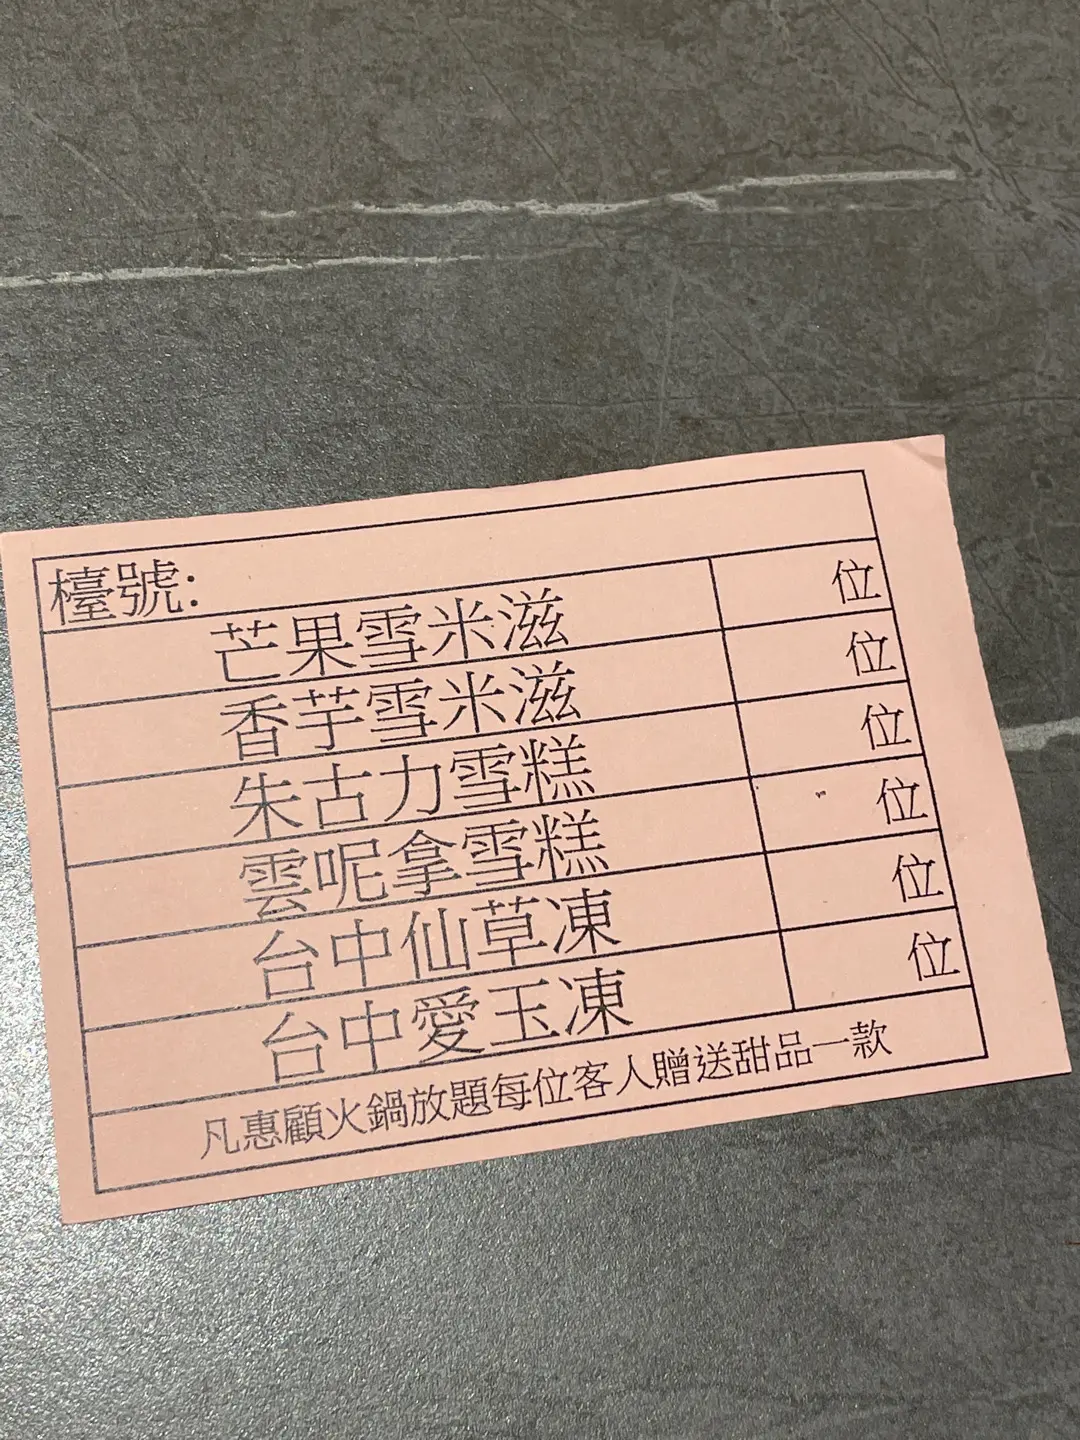 檯號:
芒果雪米滋 位
香芋雪米滋 位
朱古力雪糕 位
雲呢拿雪糕 位
台中仙草凍 位
台中愛玉凍 位
凡惠顧火鍋放題每位客人贈送甜品一款